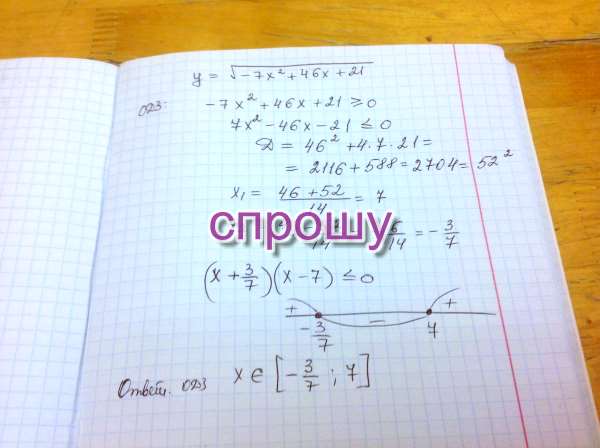 y = √-7x² + 46x + 21
ОДЗ: -7x² + 46x + 21 ≥ 0
7x² - 46x - 21 ≤ 0
Д = 46² + 4·7·21 =
= 2116 + 588 = 2704 = 52²
x₁ = 46 + 52 / 14 = 7
спрошу
14 = - 3/7
(x + 3/7)(x - 7) ≤ 0
+ - +
- 3/7 7
Ответ. ОДЗ x ∈ [- 3/7 ; 7]